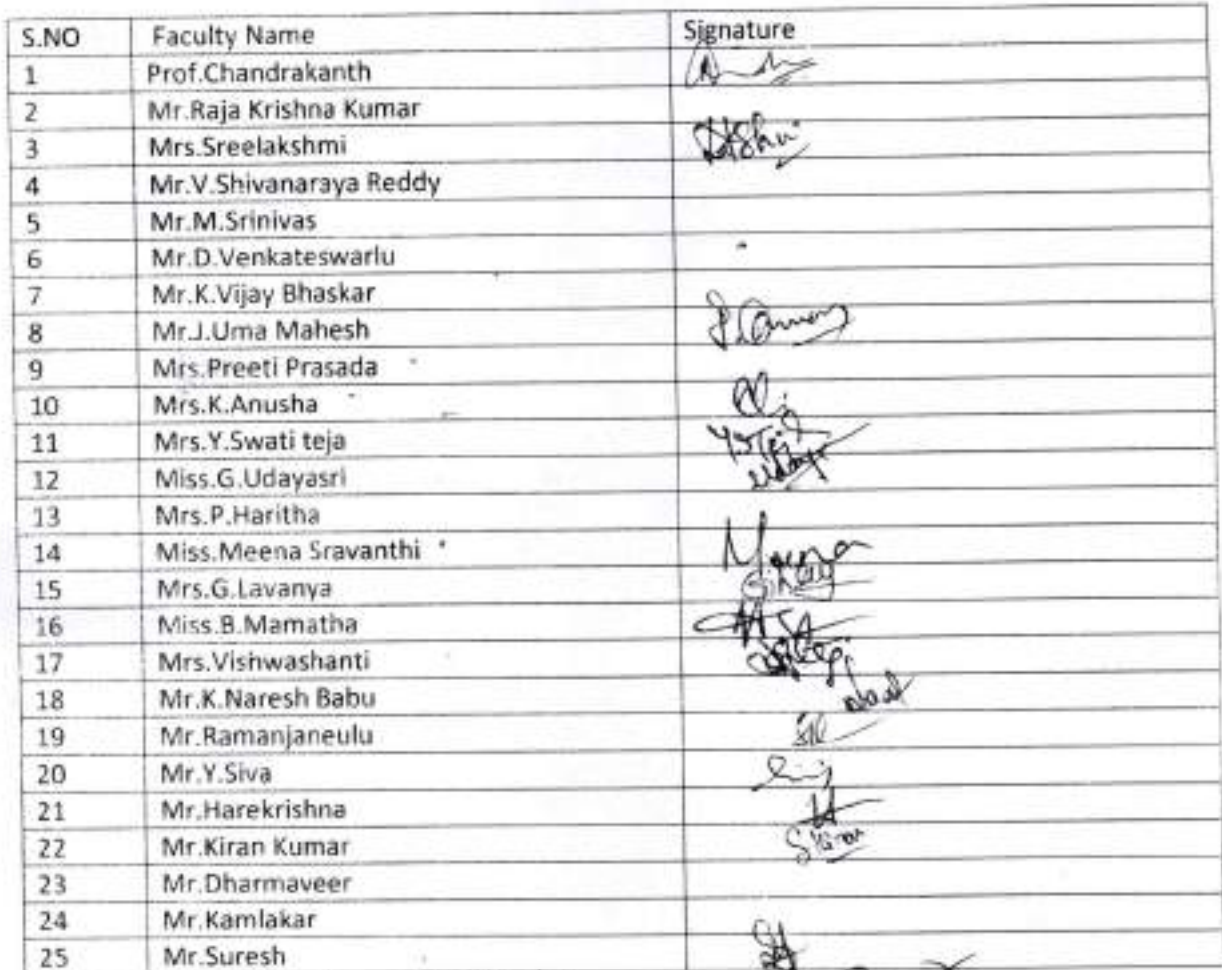 S.NO Faculty Name Signature
1 Prof.Chandrakanth
2 Mr.Raja Krishna Kumar
3 Mrs.Sreelakshmi
4 Mr.V.Shivanaraya Reddy
5 Mr.M.Srinivas
6 Mr.D.Venkateswarlu
7 Mr.K.Vijay Bhaskar
8 Mr.J.Uma Mahesh
9 Mrs.Preeti Prasada
10 Mrs.K.Anusha
11 Mrs.Y.Swati teja
12 Miss.G.Udayasri
13 Mrs.P.Haritha
14 Miss.Meena Sravanthi
15 Mrs.G.Lavanya
16 Miss.B.Mamatha
17 Mrs.Vishwashanti
18 Mr.K.Naresh Babu
19 Mr.Ramanjaneulu
20 Mr.Y.Siva
21 Mr.Harekrishna
22 Mr.Kiran Kumar
23 Mr.Dharmaveer
24 Mr.Kamlakar
25 Mr.Suresh